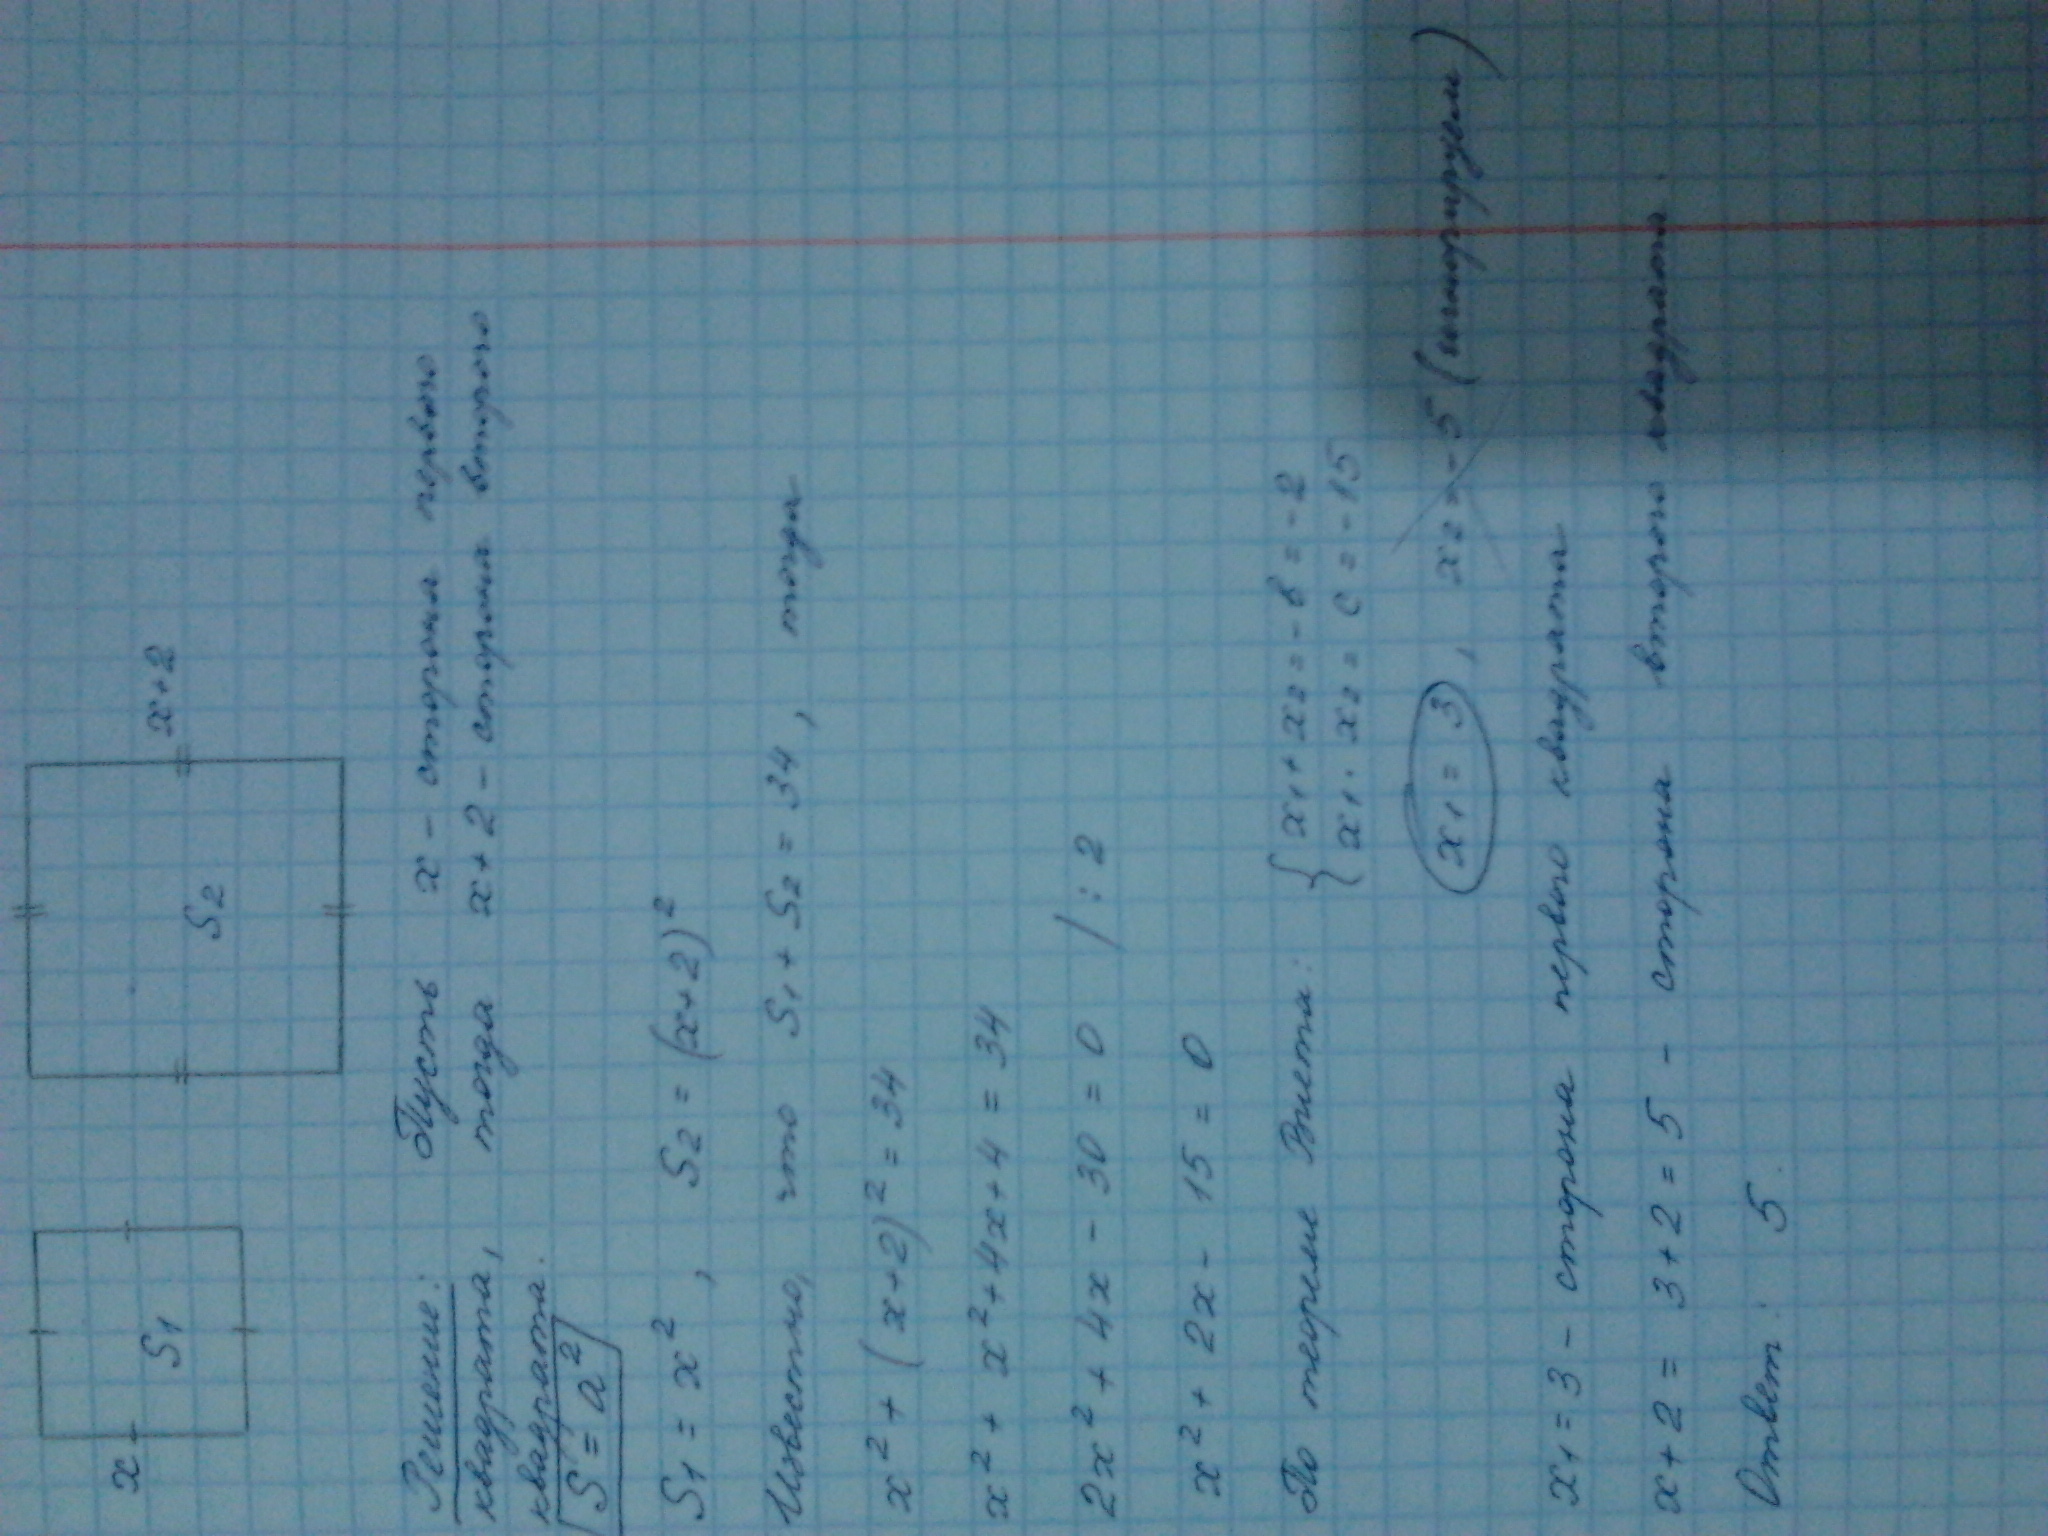 x S₁ S₂ x+2
Решение: Пусть x – сторона первого
квадрата, тогда x+2 – сторона второго
квадрата.
S = a²
S₁ = x², S₂ = (x+2)²
Известно, что S₁ + S₂ = 34, тогда
x² + (x+2)² = 34
x² + x² + 4x + 4 = 34
2x² + 4x - 30 = 0 / : 2
x² + 2x - 15 = 0
По теореме Виета: { x₁ + x₂ = -в = -2
x₁ · x₂ = c = -15
x₁ = 3, x₂ = -5 (игнорируем)
x₁ = 3 – сторона первого квадрата
x+2 = 3+2 = 5 – сторона второго квадрата.
Ответ: 5.